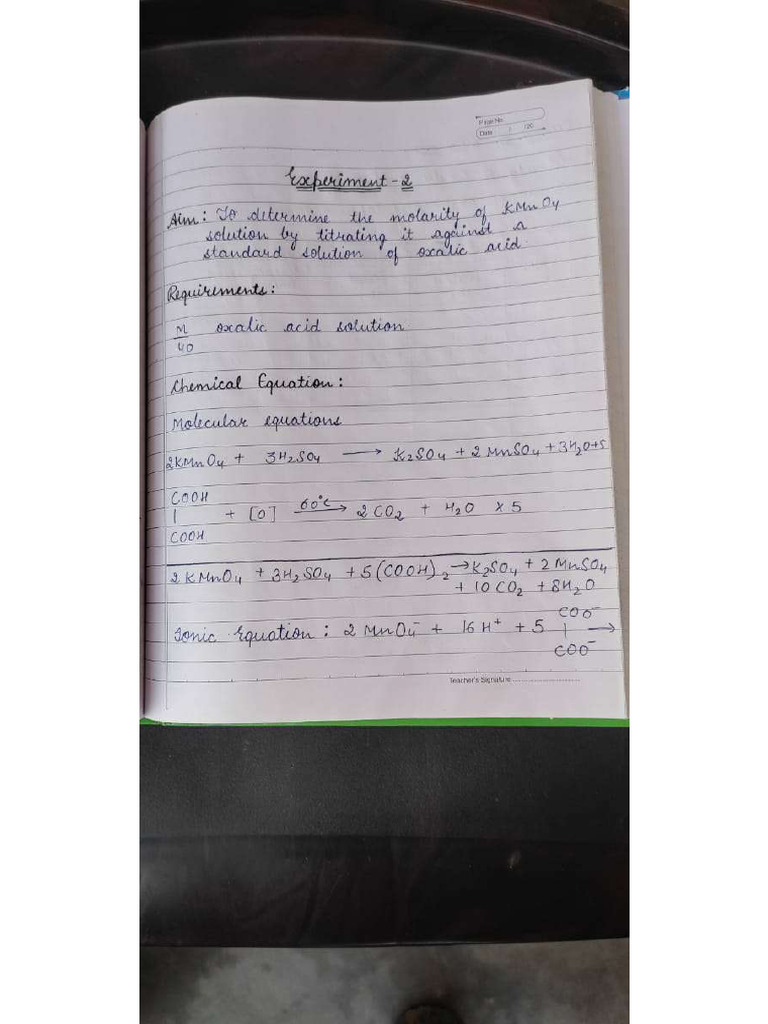 Page No.
Date / /20
Experiment - 2
Aim: To determine the molarity of KMnO4
solution by titrating it against a
standard solution of oxalic acid
Requirements:
M/40 oxalic acid solution
Chemical Equation:
Molecular equations
2KMnO4 + 3H2SO4 → K2SO4 + 2 MnSO4 + 3H2O + 5
COOH
| + [O] 60°C → 2 CO2 + H2O × 5
COOH
2 KMnO4 + 3H2SO4 + 5(COOH)2 → K2SO4 + 2 MnSO4
+ 10 CO2 + 8H2O
Ionic Equation: 2 MnO4⁻ + 16 H⁺ + 5 COO⁻
| →
COO⁻
Teacher's Signature